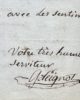 avec des sentim
Votre très humble
serviteur
Peignot